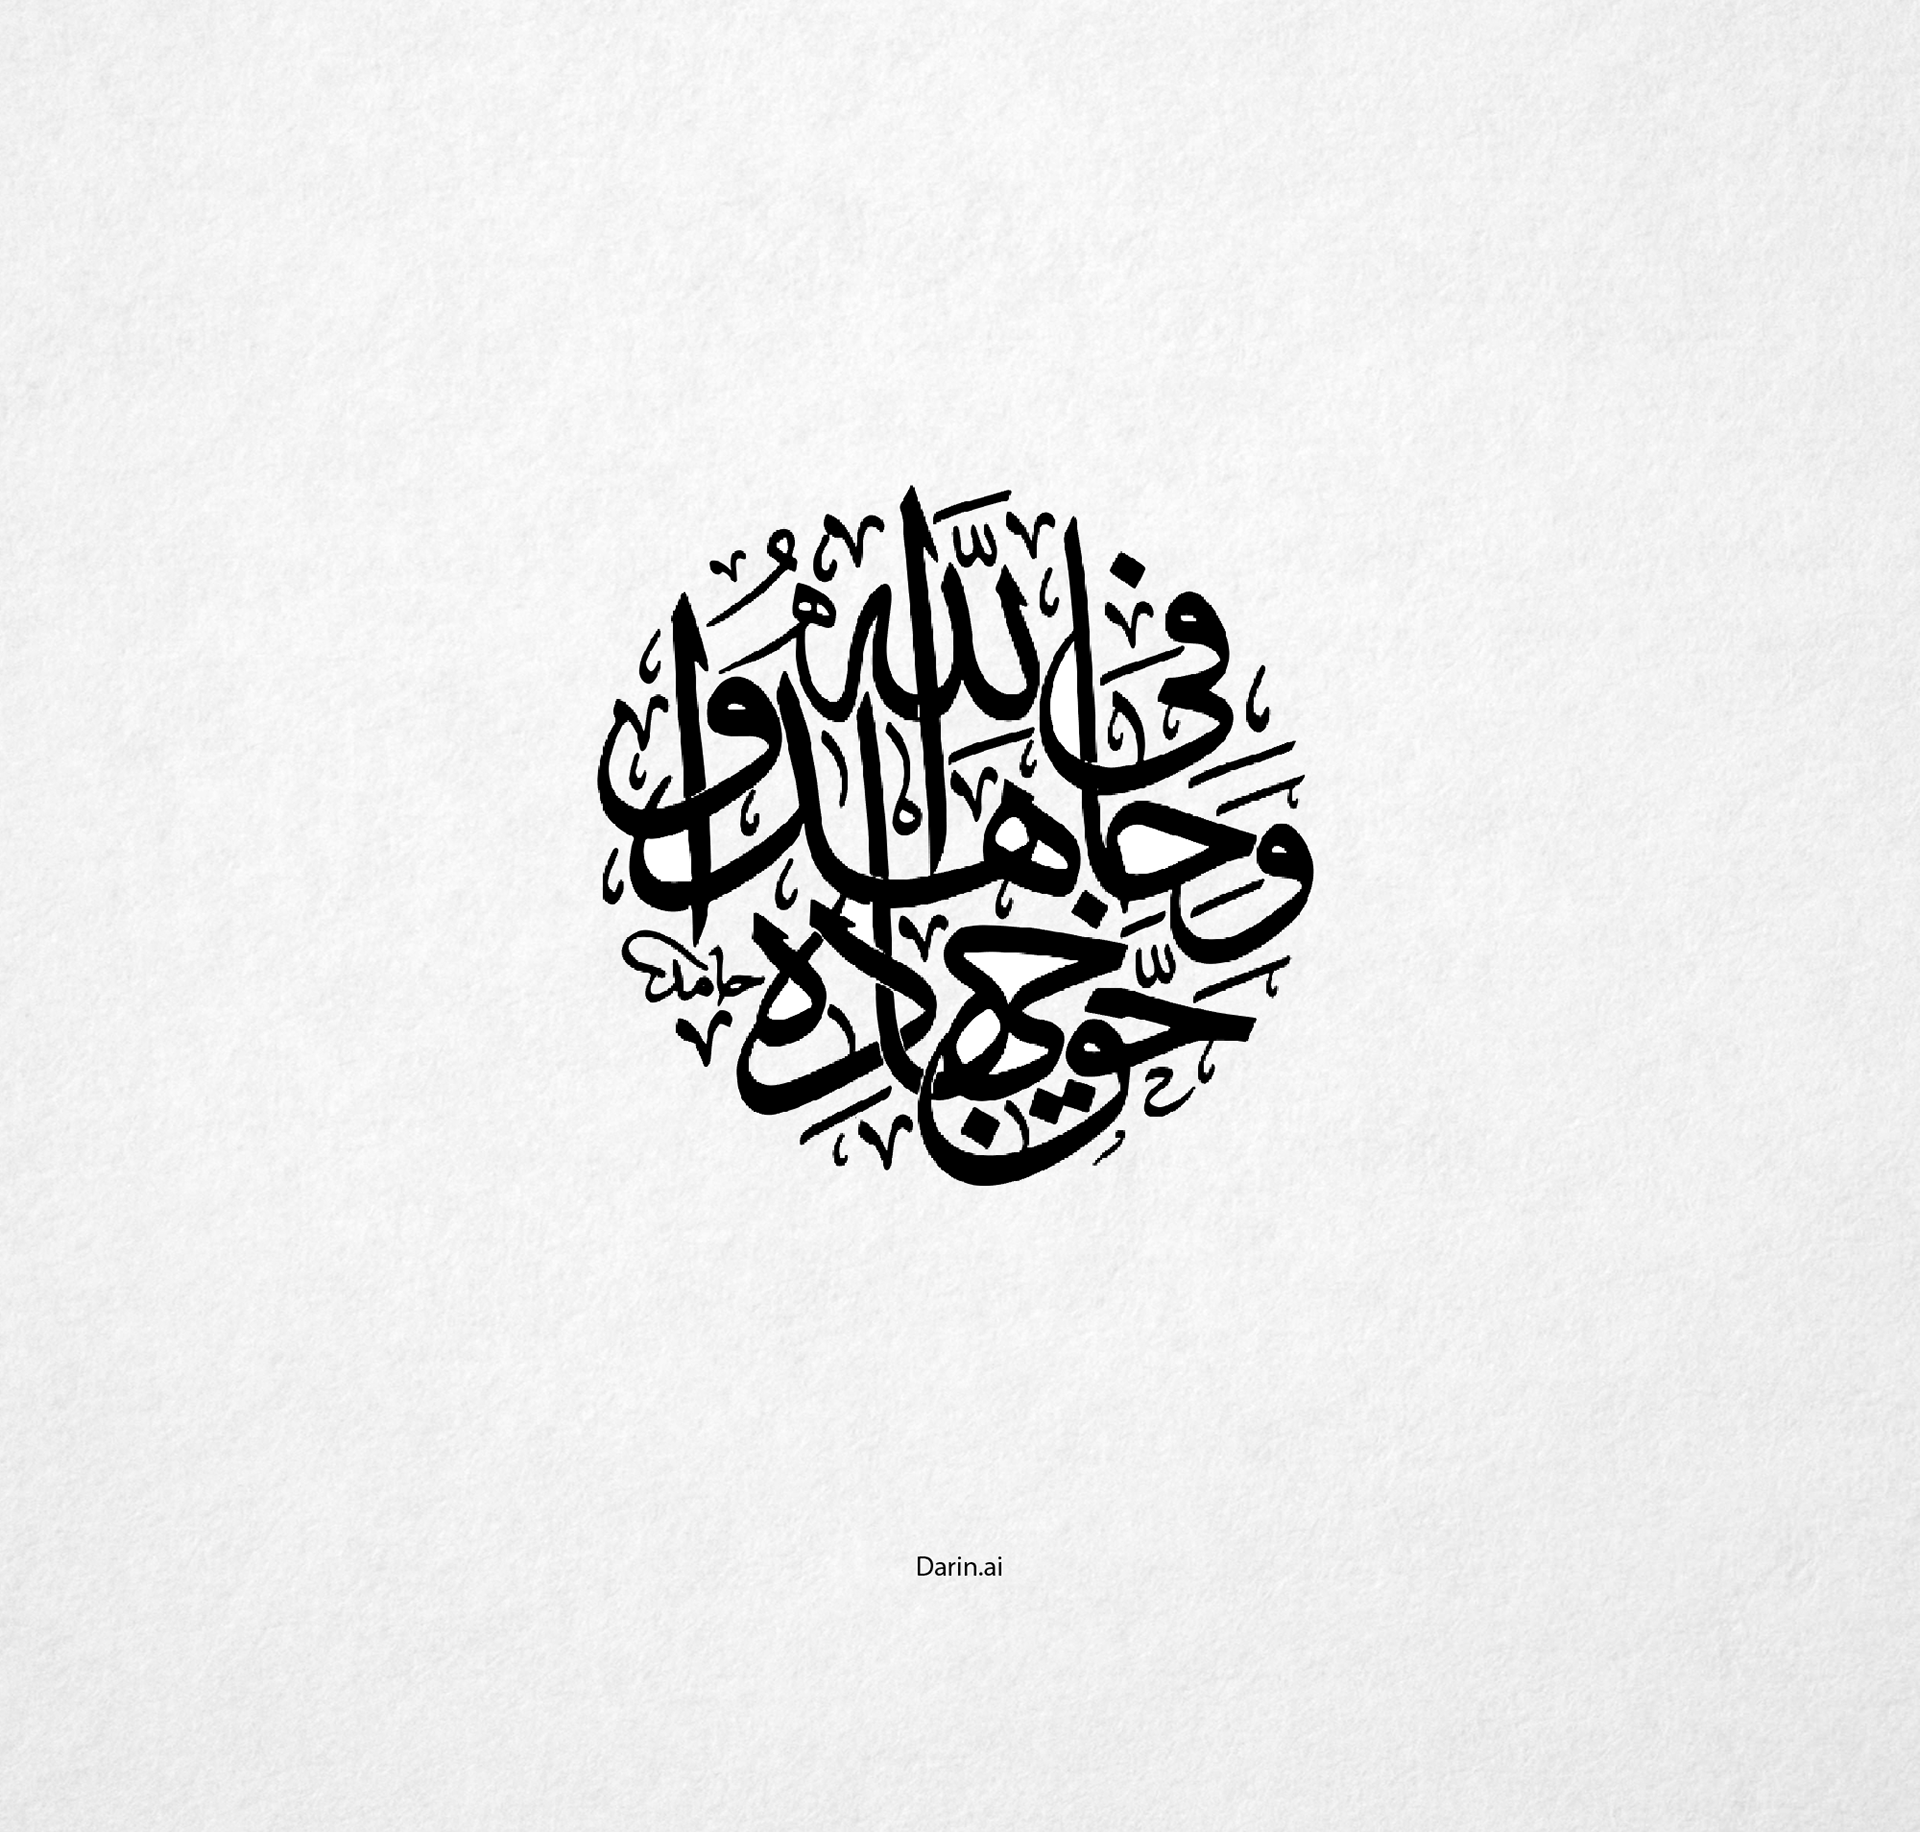 وَجَاهِدُوا فِي اللَّهِ حَقَّ جِهَادِهِ
حامد
Darin.ai